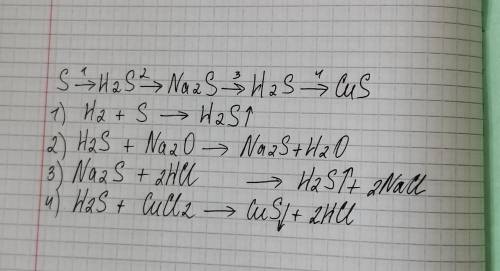 S →¹ H2S →² Na2S →³ H2S →⁴ CuS
1) H2 + S → H2S↑
2) H2S + Na2O → Na2S + H2O
3) Na2S + 2HCl → H2S↑ + 2NaCl
4) H2S + CuCl2 → CuS↓ + 2HCl